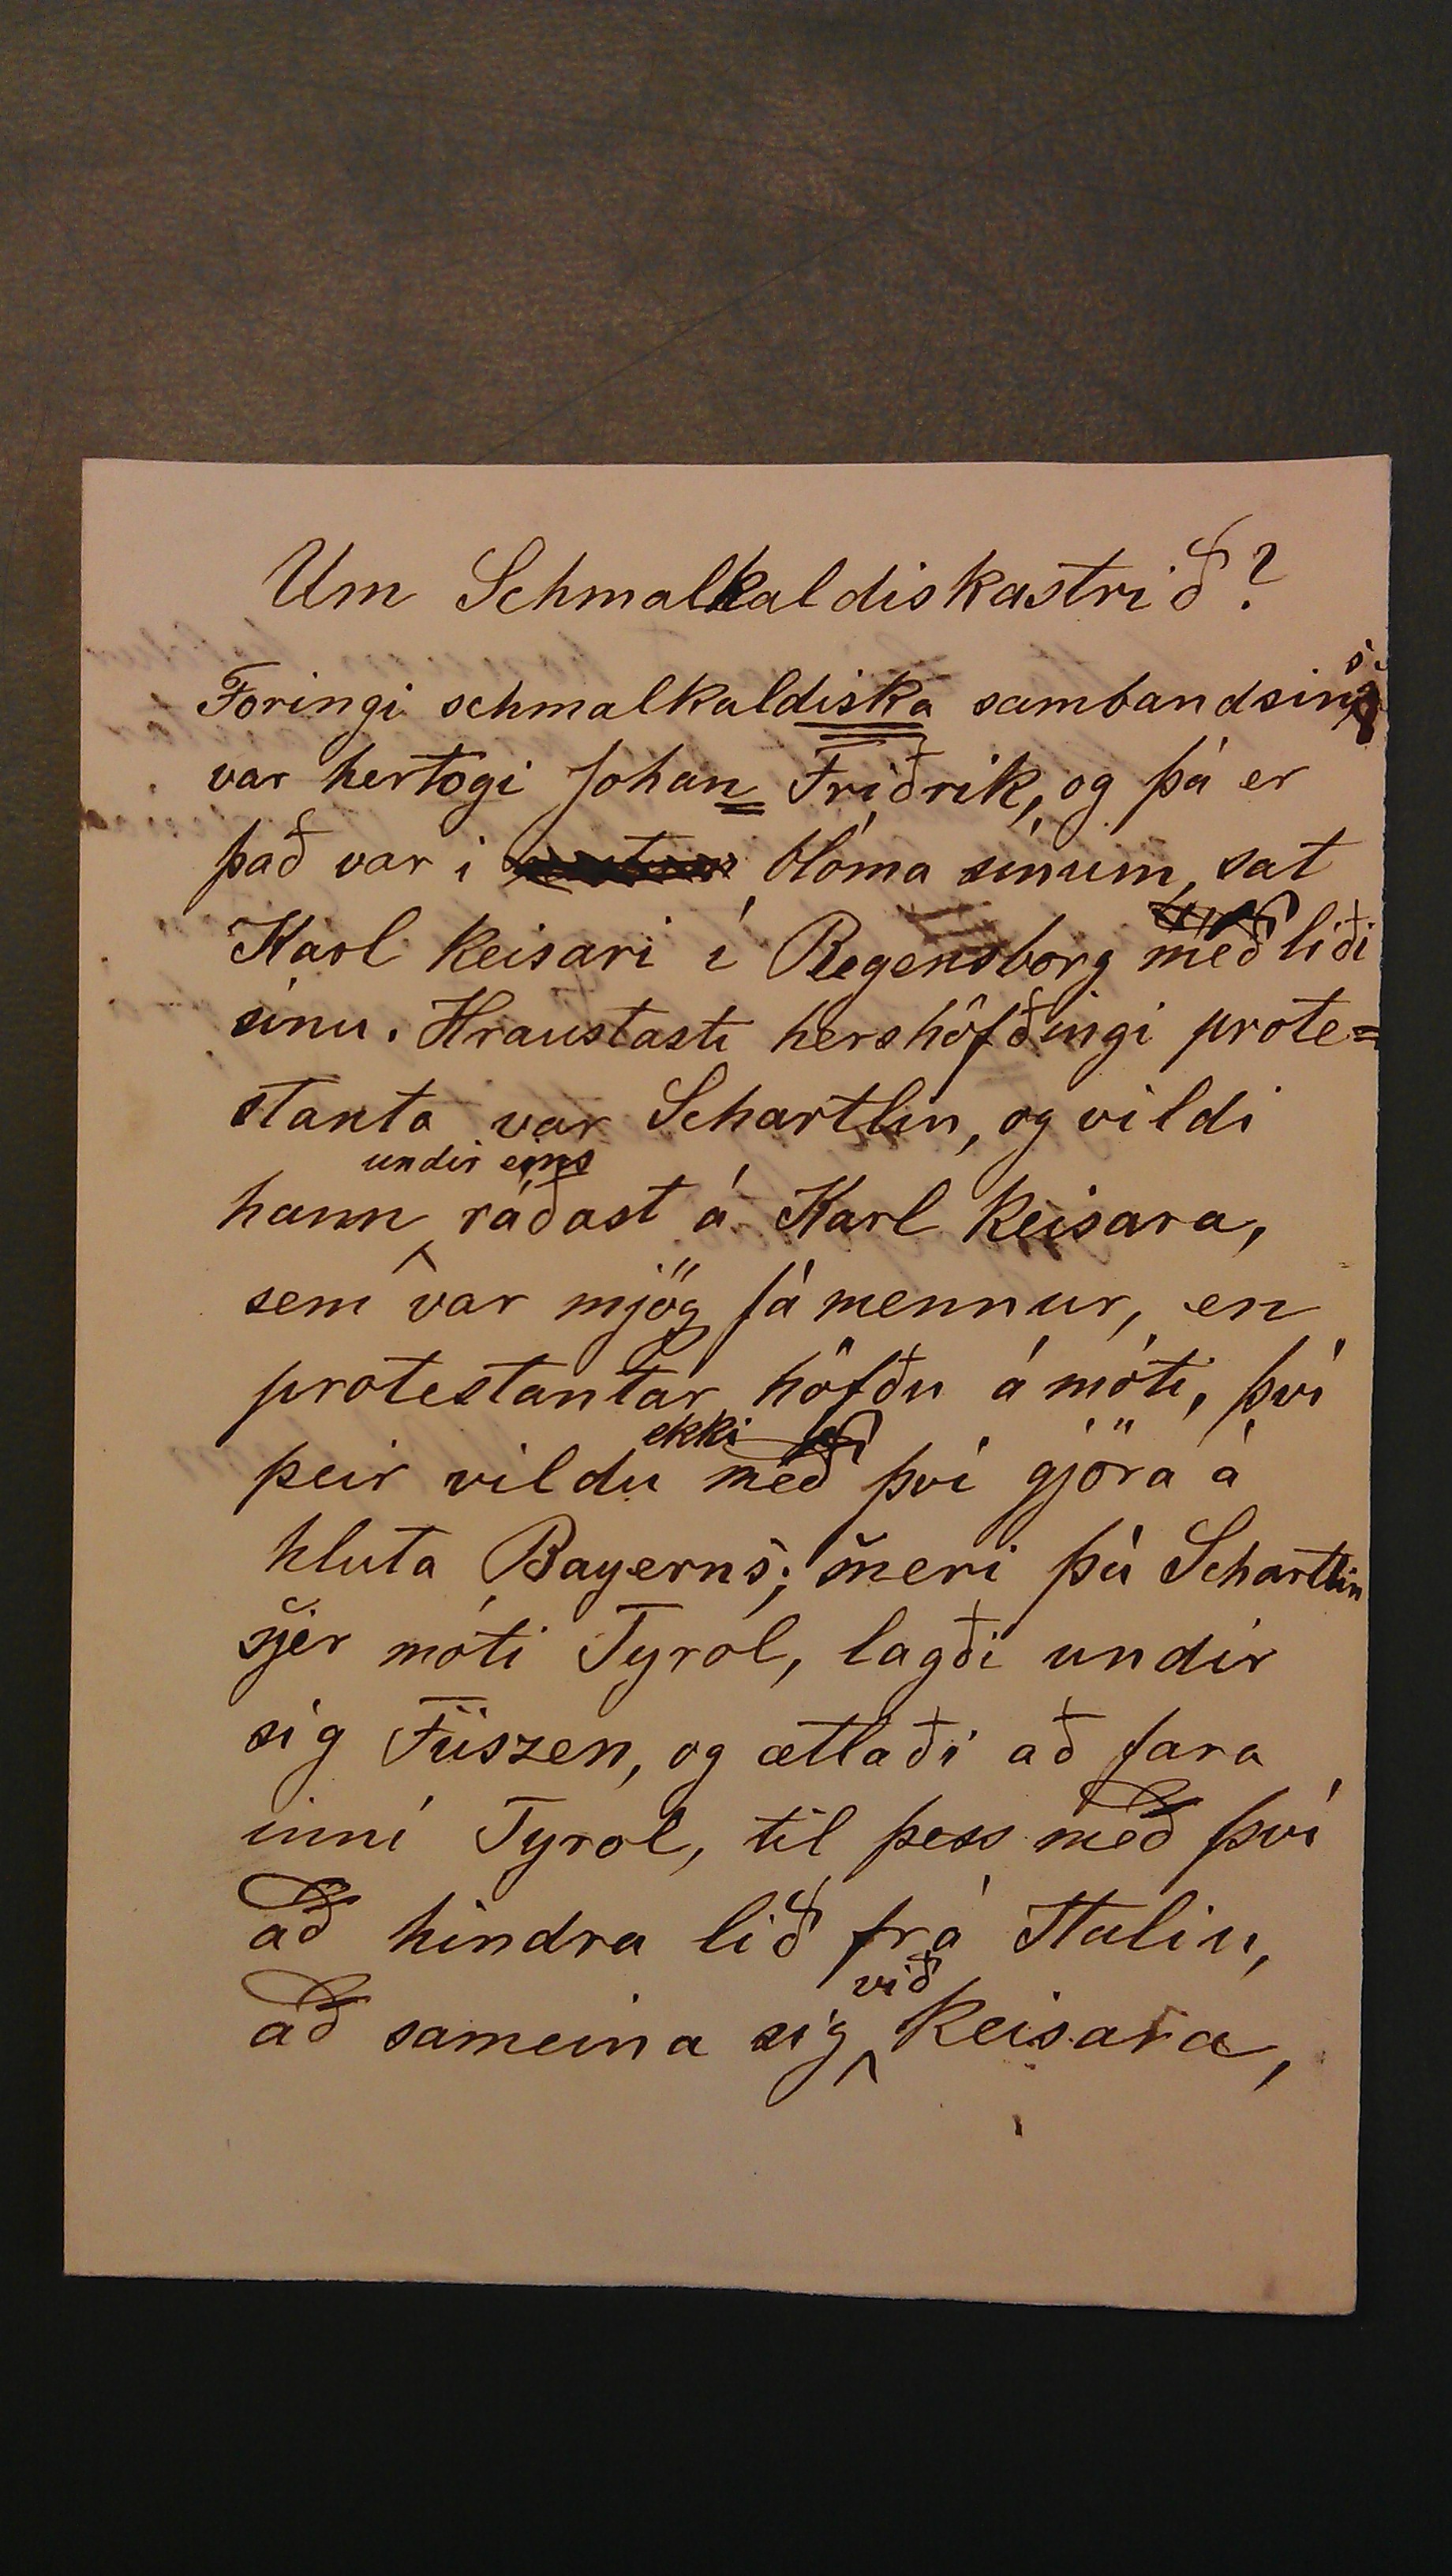 Um Schmalkaldiskastrið?
Foringi schmalkaldiska sambandsins
var hertogi Johan Friðrik, og þá er
það var i blóma sínum, sat
Karl keisari í Regensborg með liði
sínu. Hraustasti hershöfðingi prote=
stanta var Schartlin, og vildi
hann undir eins ráðast á Karl keisara,
sem var mjög fámennur, en
protestantar höfðu á móti, því
þeir vildu ekki með því gjöra á
hluta Bayerns; sneri þá Schartlin
sjer móti Tyrol, lagði undir
sig Füszen, og ætlaði að fara
inní Tyrol, til þess með því
að hindra lið frá Italiu,
að sameina sig við keisara,